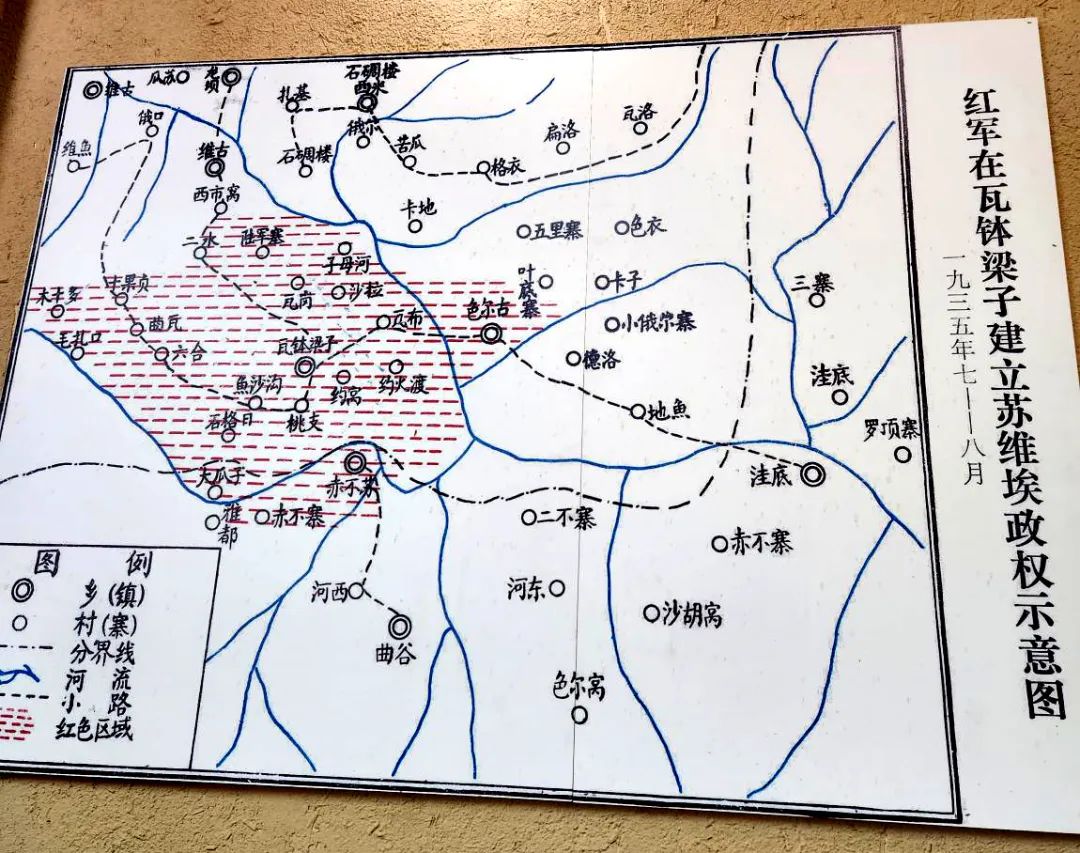 红军在瓦钵梁子建立苏维埃政权示意图
一九三五年七——八月
维古
瓜苏
石碉楼
西尔
扎基
俄口
俄尔
瓦洛
维鱼
维古
石碉楼
苦瓜
扁洛
格衣
西市窝
卡地
二水
陆军寨
五里寨
色衣
子母河
叶底寨
卡子
三寨
瓦岗
沙拉
瓜布
色尔古
小俄尔寨
曲瓦
六合
瓦钵梁子
毛扎口
德洛
约窝
约火渡
洼底
鱼沙沟
桃支
地鱼
石格日
罗顶寨
大瓜子
赤不苏
洼底
雅都
赤不寨
二不寨
赤不寨
河西
河东
沙胡窝
曲谷
色尔窝
图 例
乡（镇）
村（寨）
分界线
河 流
小 路
红色区域